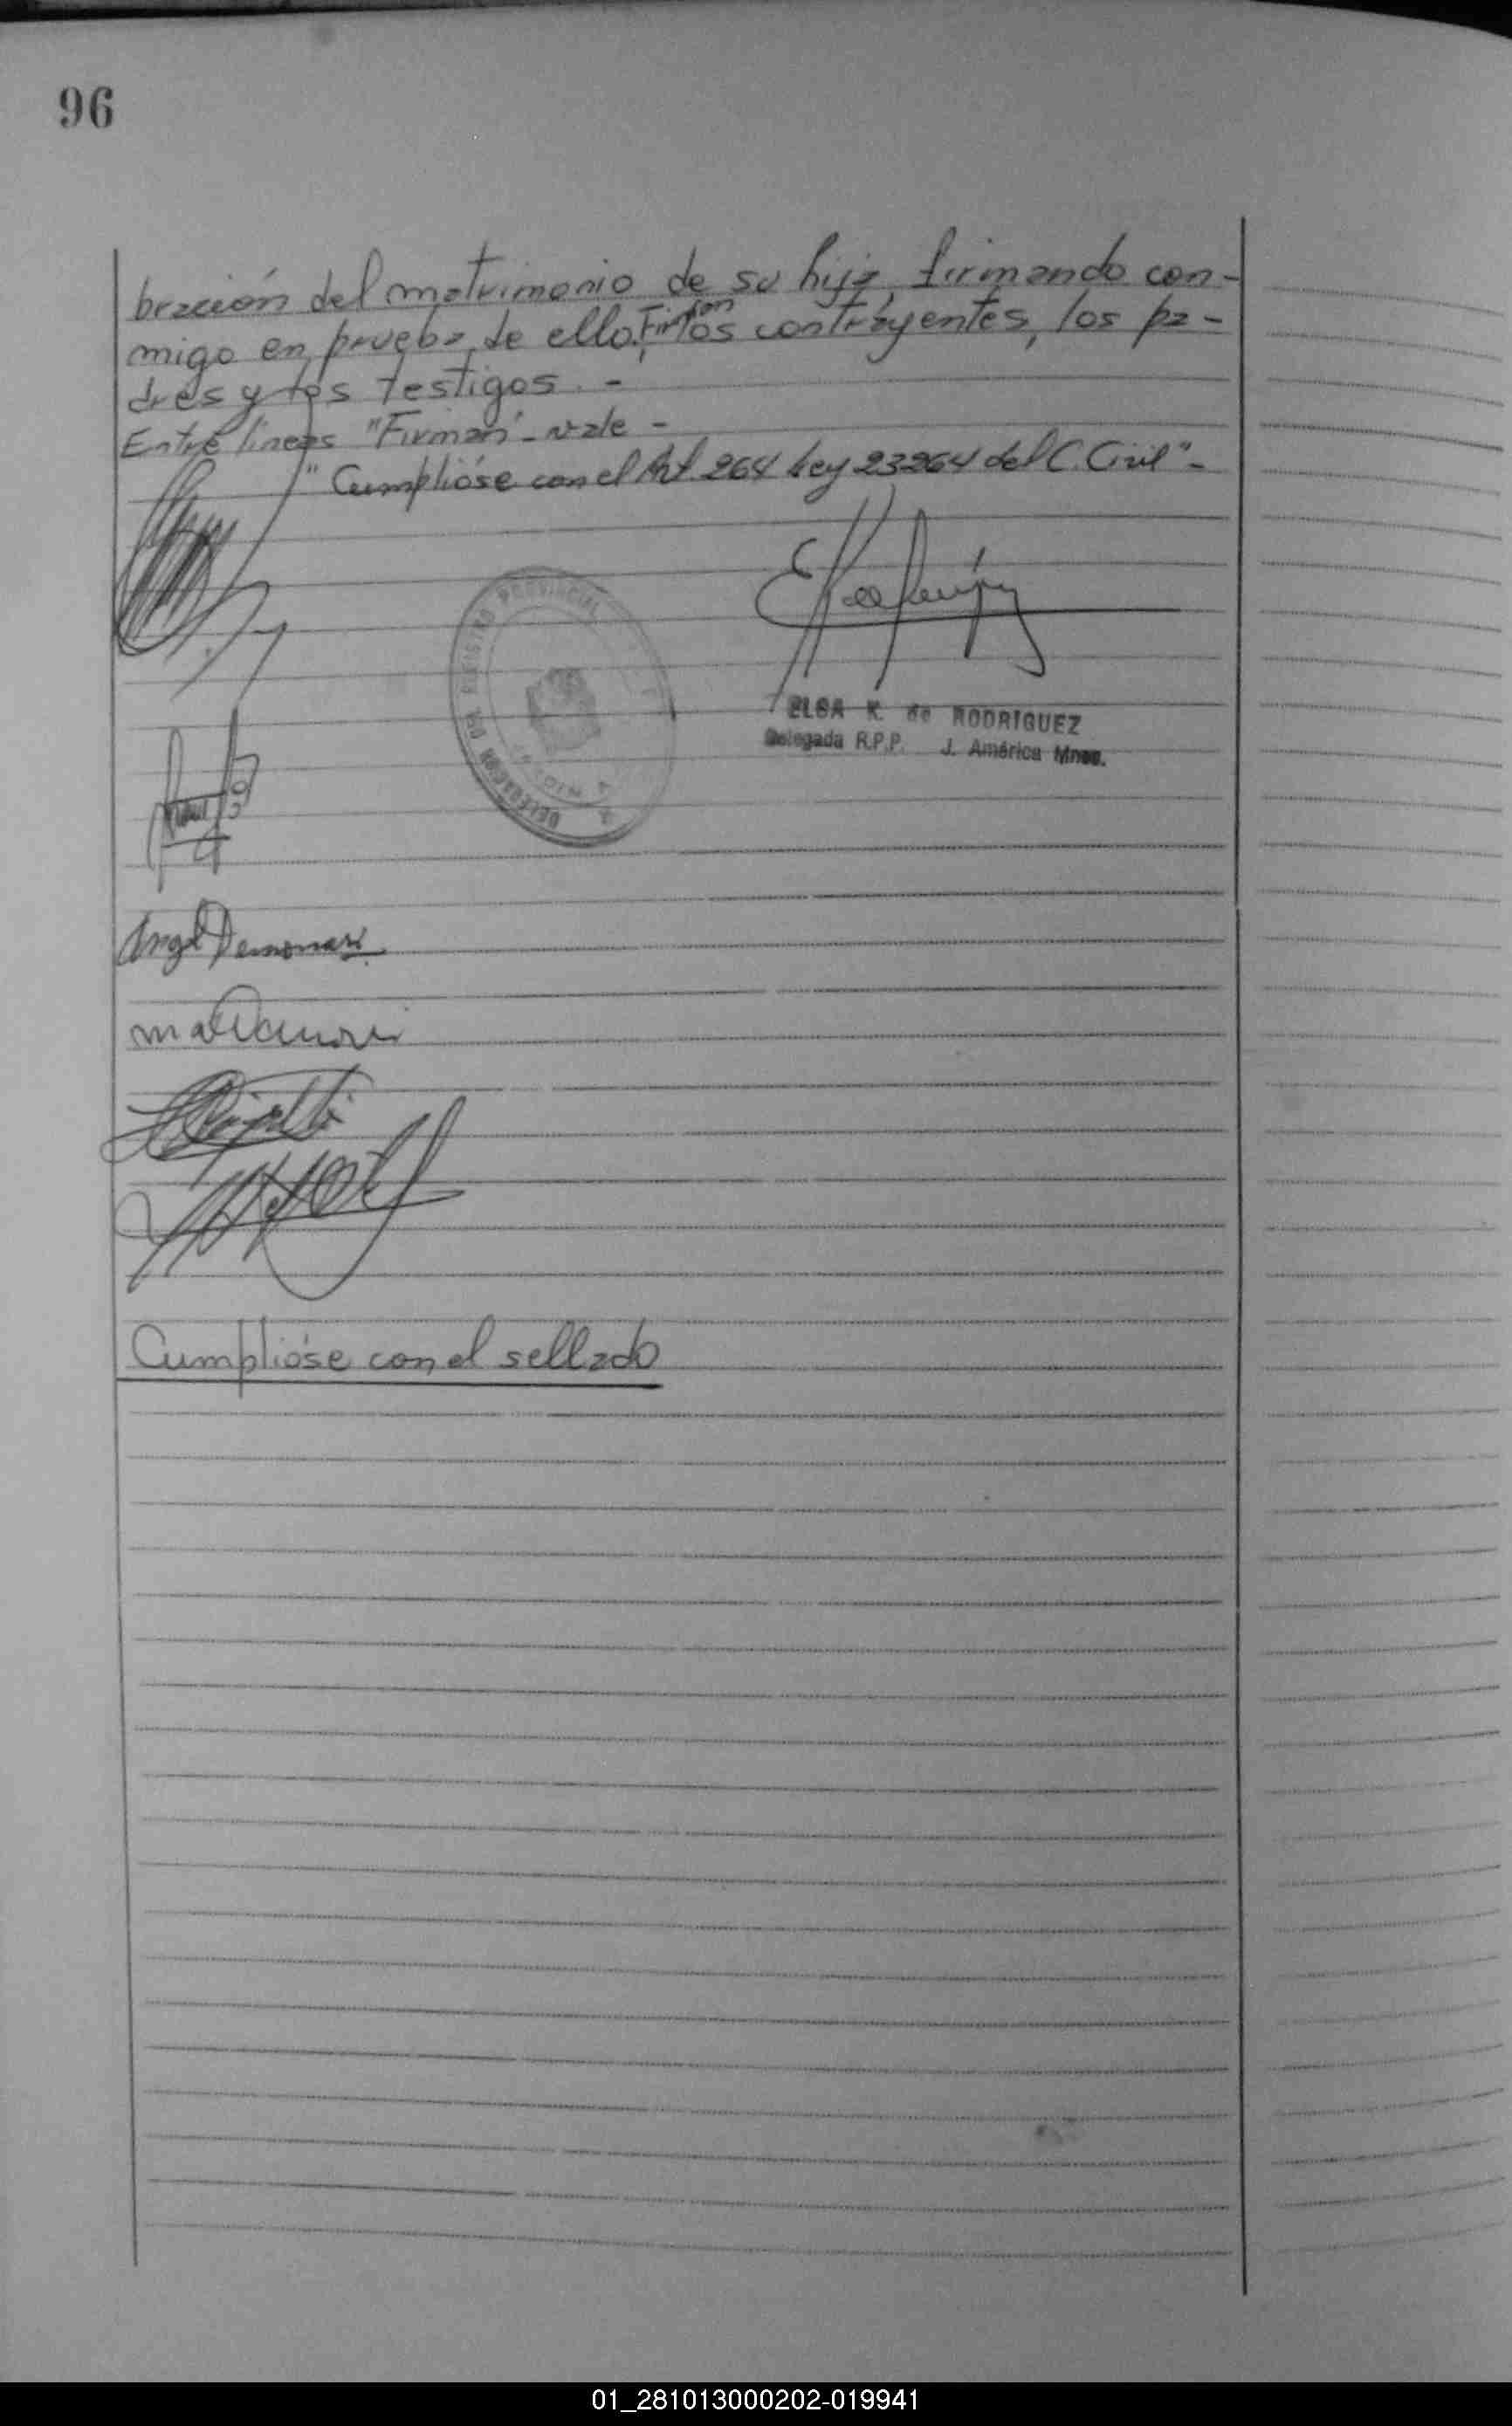 96
bración del matrimonio de su hija, firmando con-
migo en prueba de ello. Firman los contrayentes, los pa-
dres y los testigos. -
Entre líneas "Firman" - vale -
"Cumplióse con el Art. 264 Ley 23264 del C. Civil" -
REGISTRO PROVINCIAL
DELEGACION
ELSA K. de RODRIGUEZ
Delegada R.P.P. J. América Mnes.
Angel
Cumplióse con el sellado
01_281013000202-019941